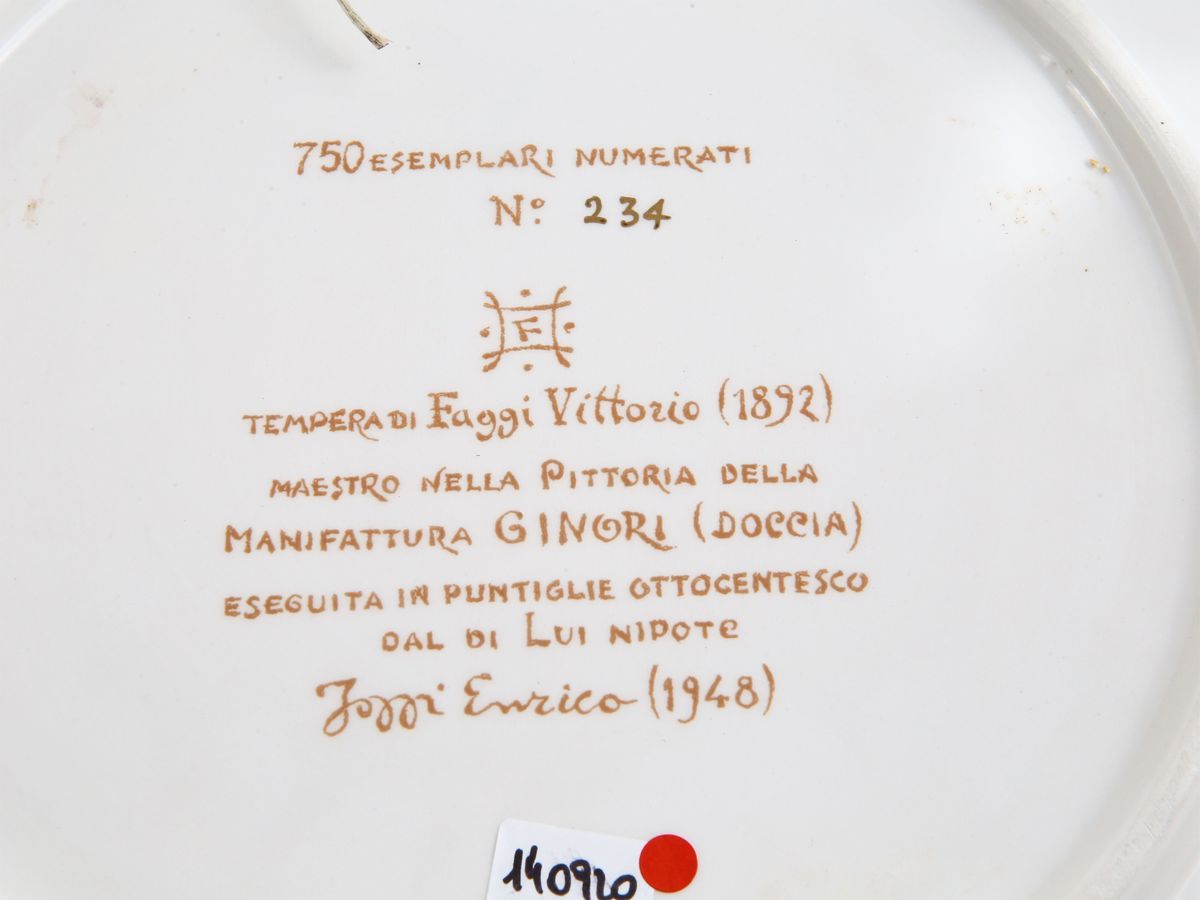 750 ESEMPLARI NUMERATI
N° 234
F
TEMPERA DI Faggi Vittorio (1892)
MAESTRO NELLA PITTORIA DELLA
MANIFATTURA GINORI (DOCCIA)
ESEGUITA IN PUNTIGLIE OTTOCENTESCO
DAL DI LUI NIPOTE
Enrico (1948)
140920